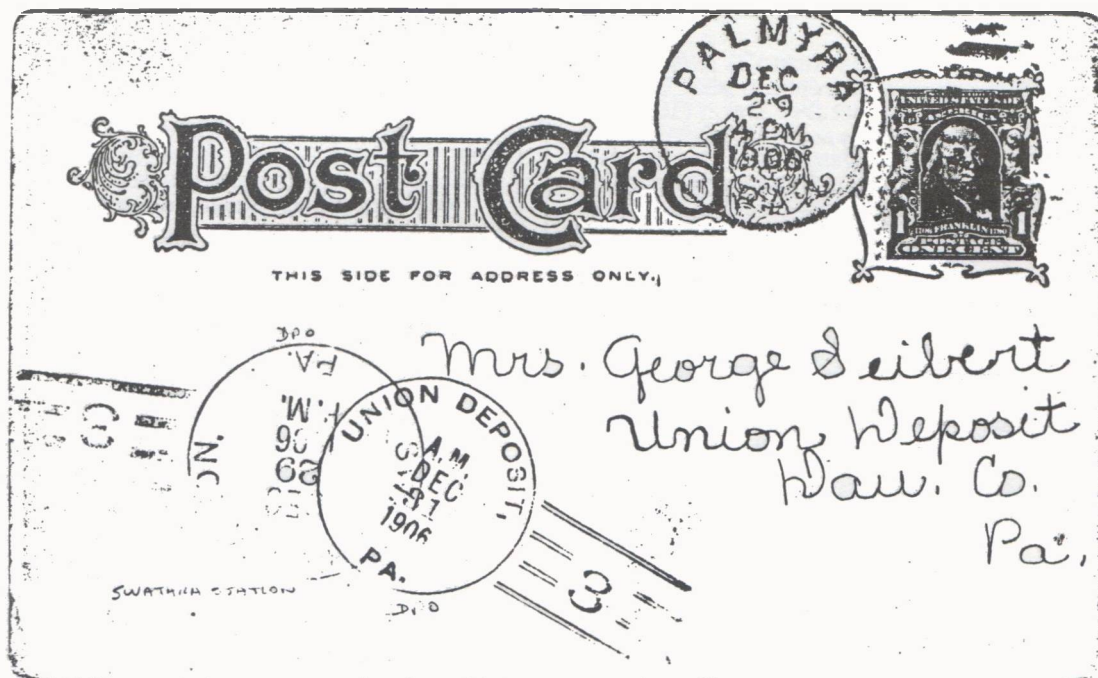 PALMYRA
DEC
29
4 PM
Post Card
UNITED STATES OF AMERICA
FRANKLIN
POSTAGE
ONE CENT
THIS SIDE FOR ADDRESS ONLY.
Mrs. George Seibert
Union Deposit
Dau. Co.
Pa.
DPO
PA.
29
3
UNION DEPOSIT,
A.M.
DEC
31
1906
PA.
3
DPO